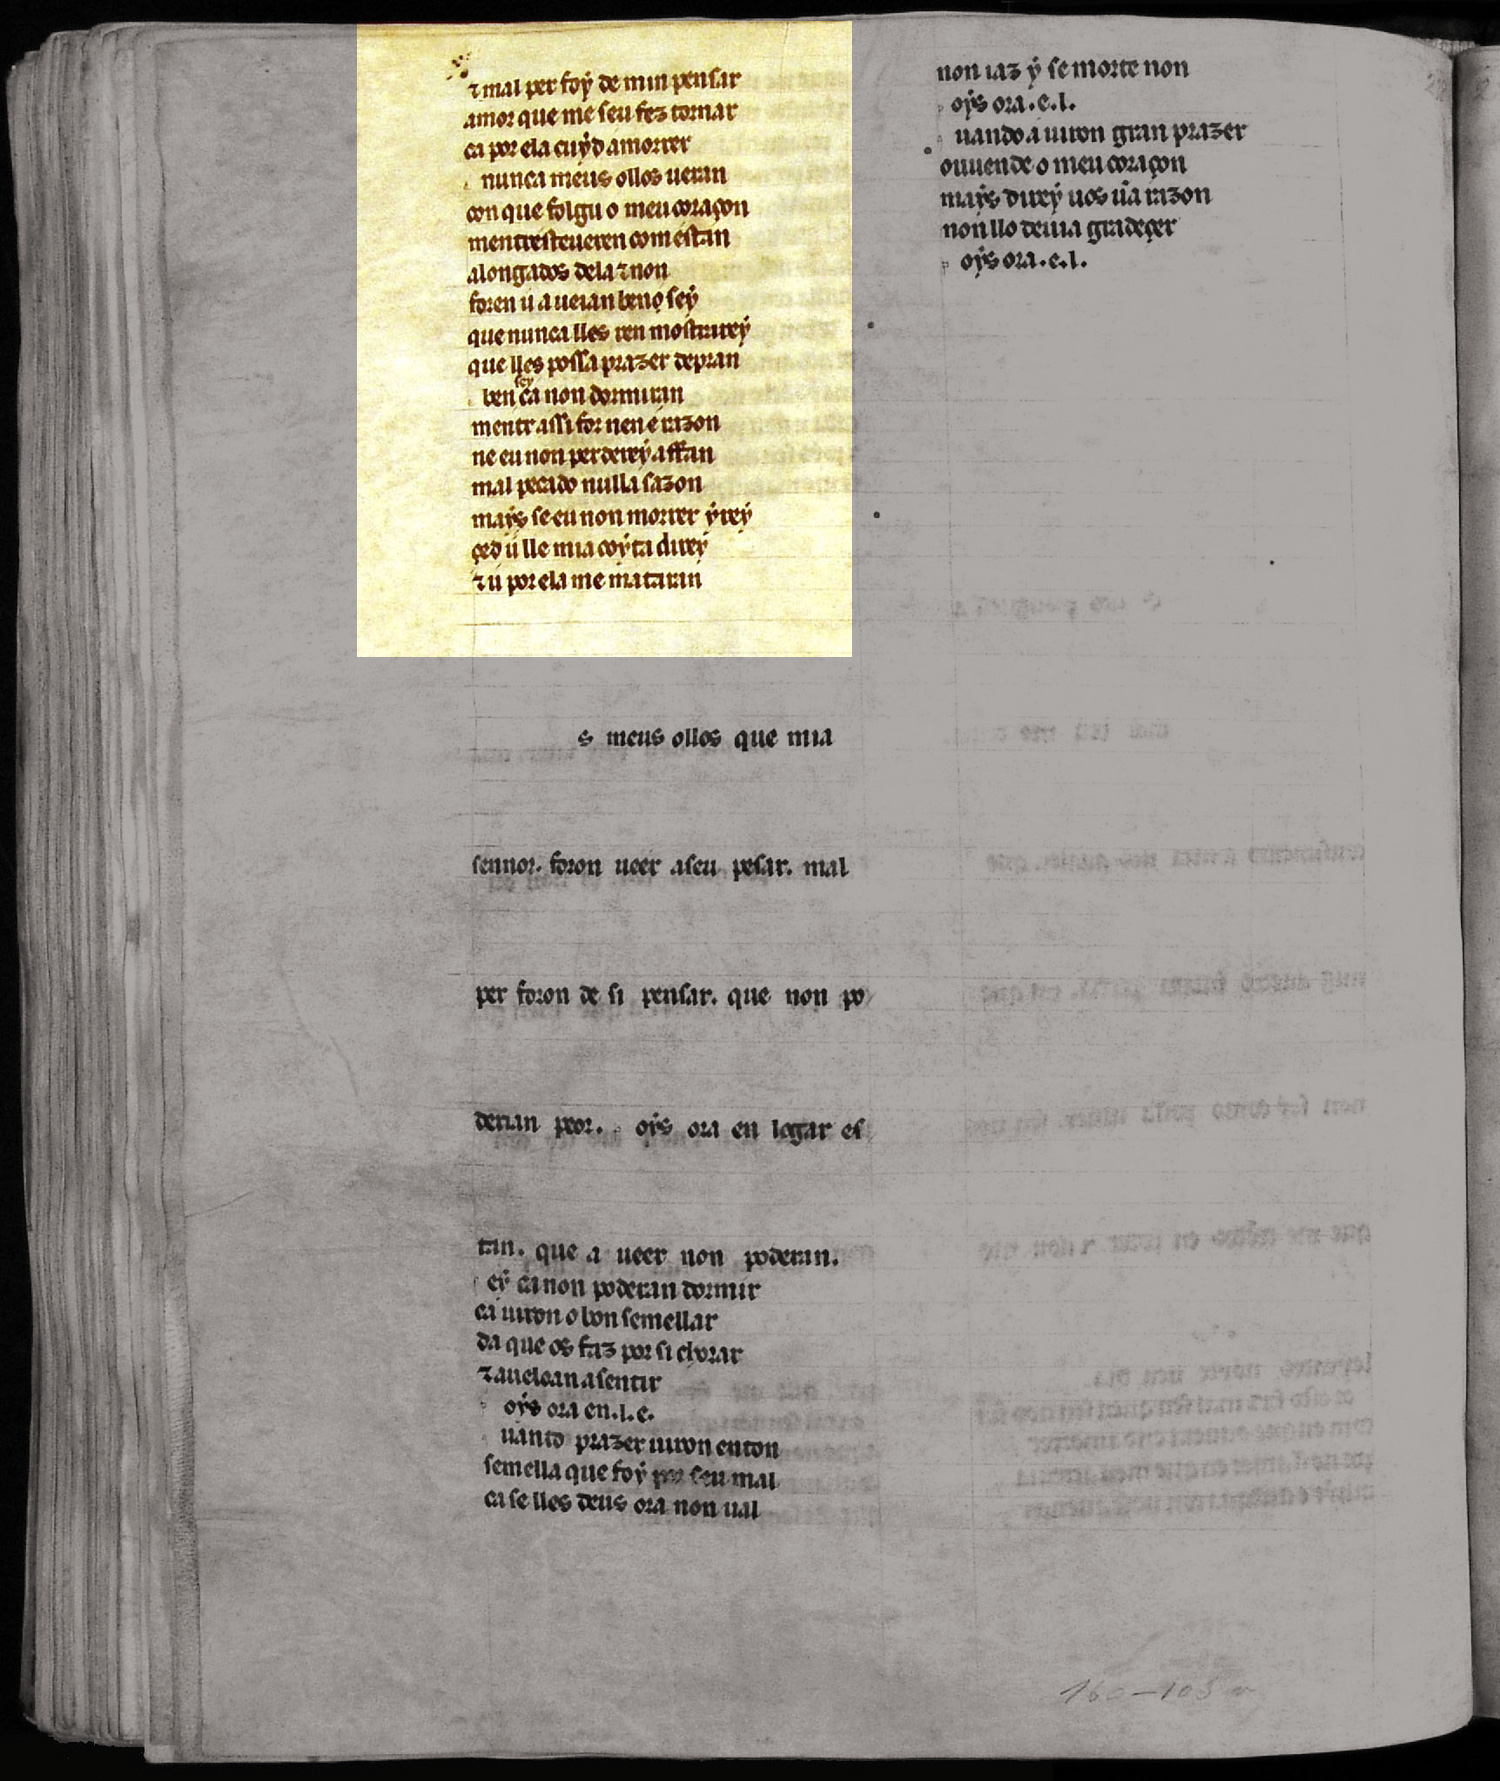 ⁊ mal per foẏ de min pensar
amor que me seu fez tornar
ca por ela cuẏd a morrer
nunca meus ollos ueran
con que folgu o meu coraçon
mentresteueren com estan
alongados dela ⁊ non
foren u a ueian ben o seẏ
que nunca lles ren mostrareẏ
que lles possa prazer depran
ben seẏ ca non dormiran
mentr assi for nen é razon
ne eu non perdereẏ affan
mal pecado nulla sazon
maẏs se eu non morrer ẏreẏ
çed ú lle mia coẏta direẏ
⁊ ú por ela me mataran
s meus ollos que mia
sennor. foron ueer a seu pesar. mal
per foron de si pensar. que non po
derian peor. oẏs ora en logar es
tan. que a ueer non poderan.
eẏ ca non poderan dormir
ca uiron o bon semellar
da que os faz por si chorar
⁊ aueloan a sentir
oẏs ora en.l.e.
uanto prazer uiron enton
semella que foẏ por seu mal
ca se lles deus ora non ual
non iaz ẏ se morte non
oẏs ora.e.l.
uando a uiron gran prazer
ouuende o meu coraçon
maẏs direẏ uos ũa razon
non llo deuia gradeçer
oẏs ora.e.l.